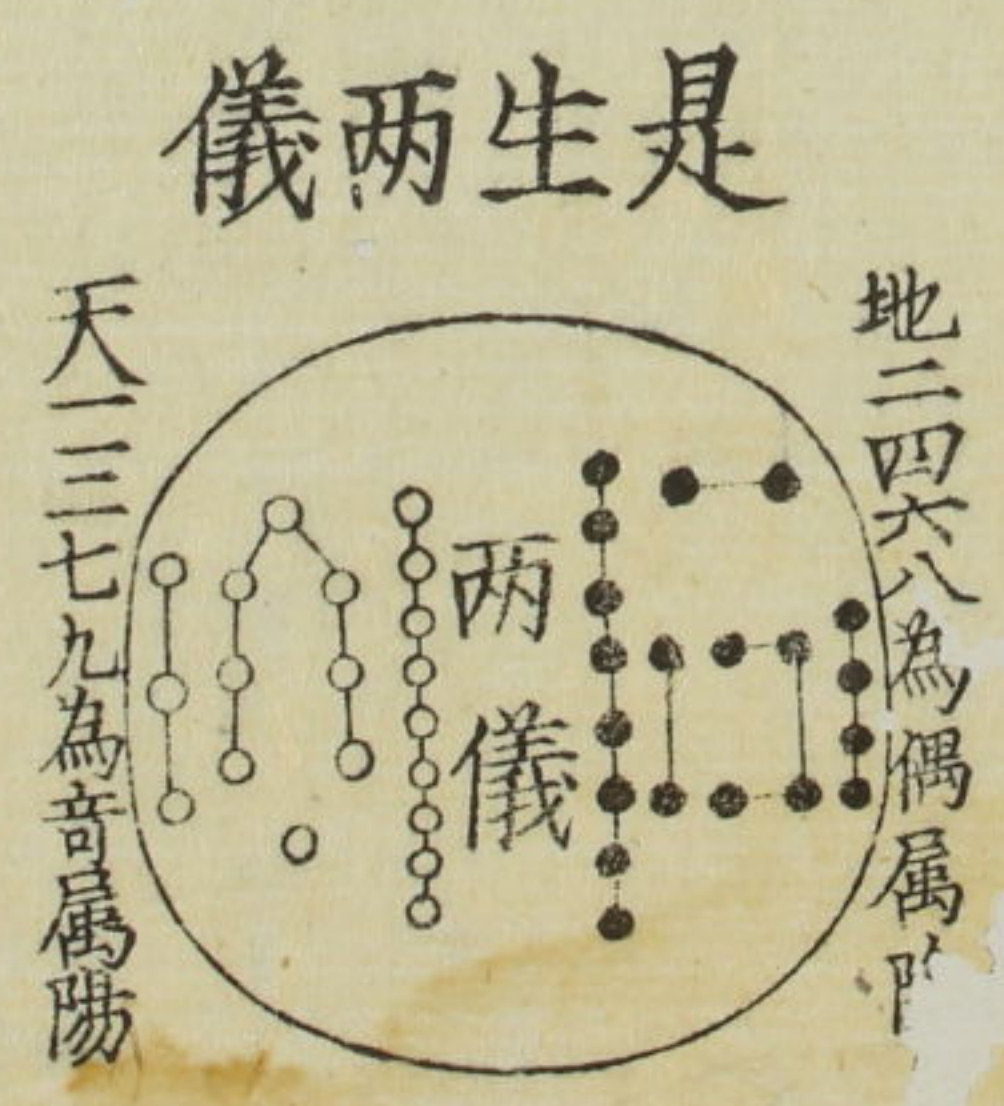 是生两儀
地二四六八為偶属
两儀
天一三七九為竒属陽